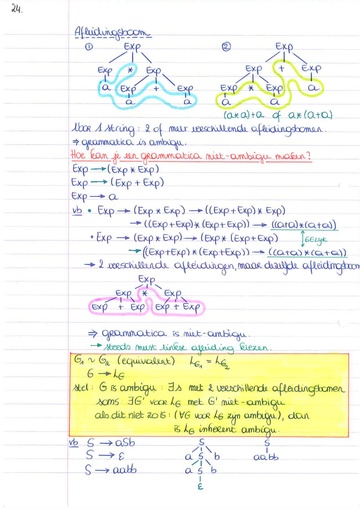 24.
Afleidingsboom
① Exp ② Exp
Exp * Exp Exp + Exp
a Exp + Exp Exp * Exp a
a a a a
(a*a)+a of a*(a+a)
Voor 1 string: 2 of meer verschillende afleidingsbomen.
⇒ grammatica is ambigu.
Hoe kan je een grammatica niet-ambigu maken?
Exp → (Exp * Exp)
Exp → (Exp + Exp)
Exp → a
vb • Exp → (Exp * Exp) → ((Exp+Exp) * Exp)
→ ((Exp+Exp)*(Exp+Exp)) → ((a+a)*(a+a))
• Exp → (Exp * Exp) → (Exp * (Exp+Exp)) ↕ Gelijk
→ ((Exp+Exp)*(Exp+Exp)) → ((a+a)*(a+a))
→ 2 verschillende afleidingen, maar dezelfde afleidingsboom
Exp
Exp * Exp
Exp + Exp Exp + Exp
⇒ grammatica is niet-ambigu.
→ steeds meest linkse afleiding kiezen.
G₁ ~ G₂ (equivalent) L_G₁ = L_G₂
G → L_G
stel: G is ambigu: ∃s met 2 verschillende afleidingsbomen
soms ∃G' voor L_G met G' niet-ambigu
als dit niet zo is: (∀G voor L_G zijn ambigu), dan
is L_G inherent ambigu
vb S → aSb S S
S → ε a S b aabb
S → aabb a S b
ε